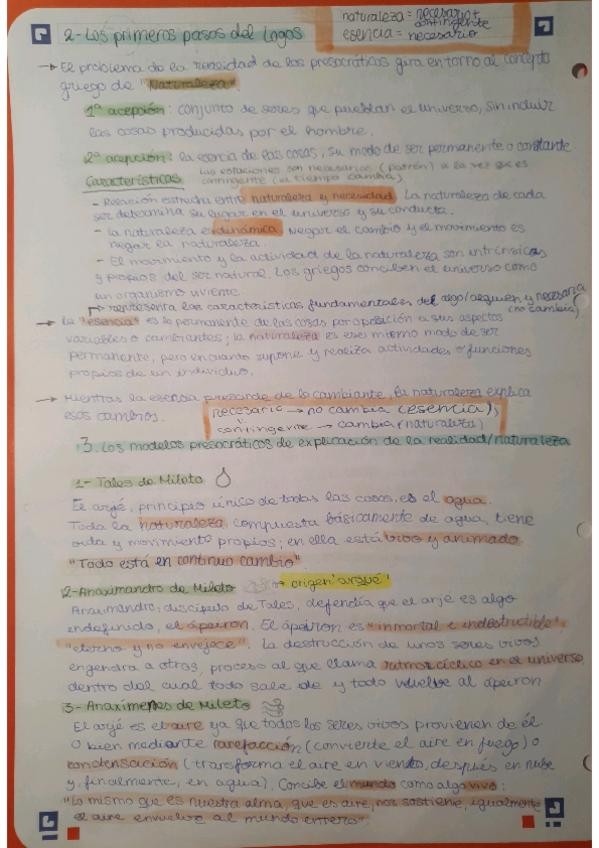 naturaleza = necesario + contingente
esencia = necesario
2- Los primeros pasos del Logos
→ El problema de la realidad de los presocráticos gira en torno al concepto
griego de "Naturaleza".
1ª acepción: conjunto de seres que pueblan el universo, sin incluir
las cosas producidas por el hombre.
2ª acepción: la esencia de las cosas, su modo de ser permanente o constante
las estaciones son necesarias (patrón) a la vez que es
contingente (el tiempo cambia)
Características
- Relación estrecha entre naturaleza y necesidad. La naturaleza de cada
ser determina su lugar en el universo y su conducta.
- La naturaleza es dinámica. Negar el cambio y el movimiento es
negar la naturaleza.
- El movimiento y la actividad de la naturaleza son intrínsicos
y propios del ser natural. Los griegos conciben el universo como
un organismo viviente.
representa las características fundamentales del algo/alguien y necesaria
(no cambia)
→ La "esencia" es lo permanente de las cosas por oposición a sus aspectos
variables o cambiantes; la naturaleza es ese mismo modo de ser
permanente, pero en cuanto supone y realiza actividades o funciones
propias de un individuo.
→ Mientras la esencia prescinde de lo cambiante, la naturaleza explica
esos cambios.
necesario → no cambia (esencia)
contingente → cambia (naturaleza)
3. Los modelos presocráticos de explicación de la realidad/naturaleza
1- Tales de Mileto
El arjé, principio único de todas las cosas, es el agua.
Toda la naturaleza, compuesta básicamente de agua, tiene
vida y movimiento propios; en ella está vivo y animado.
"Todo está en continuo cambio"
2- Anaximandro de Mileto → origen 'arqué'
Anaximandro, discípulo de Tales, defendía que el arje es algo
indefinido, el ápeiron. El ápeiron es "inmortal e indestructible",
"eterno y no envejece". La destrucción de unos seres vivos
engendra a otros, proceso al que llama ritmo cíclico en el universo,
dentro del cual todo sale de y todo vuelve al ápeiron
3- Anaxímenes de Mileto
El arjé es el aire ya que todos los seres vivos provienen de él
o bien mediante rarefacción (convierte el aire en fuego) o
condensación (transforma el aire en viento, después en nube
y, finalmente, en agua). Concibe el mundo como algo vivo:
"Lo mismo que es nuestra alma, que es aire, nos sostiene, igualmente
el aire envuelve al mundo entero"